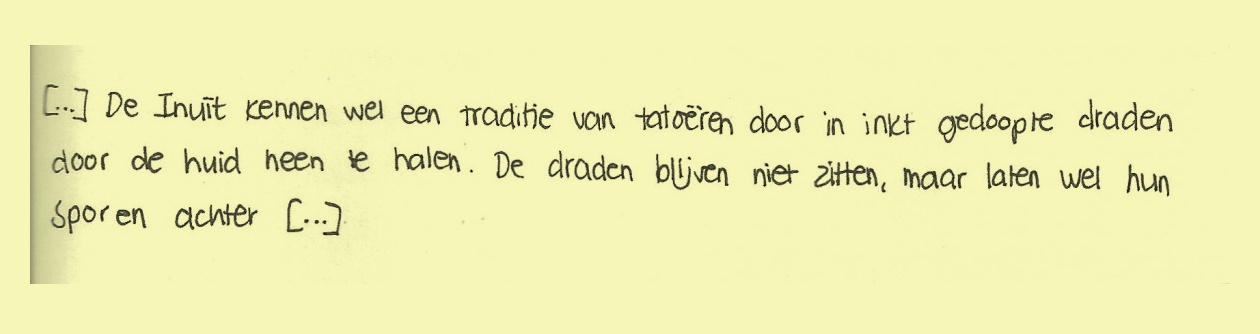 [...] De Inuït kennen wel een traditie van tatoëren door in inkt gedoopte draden
door de huid heen te halen. De draden blijven niet zitten, maar laten wel hun
sporen achter [...]